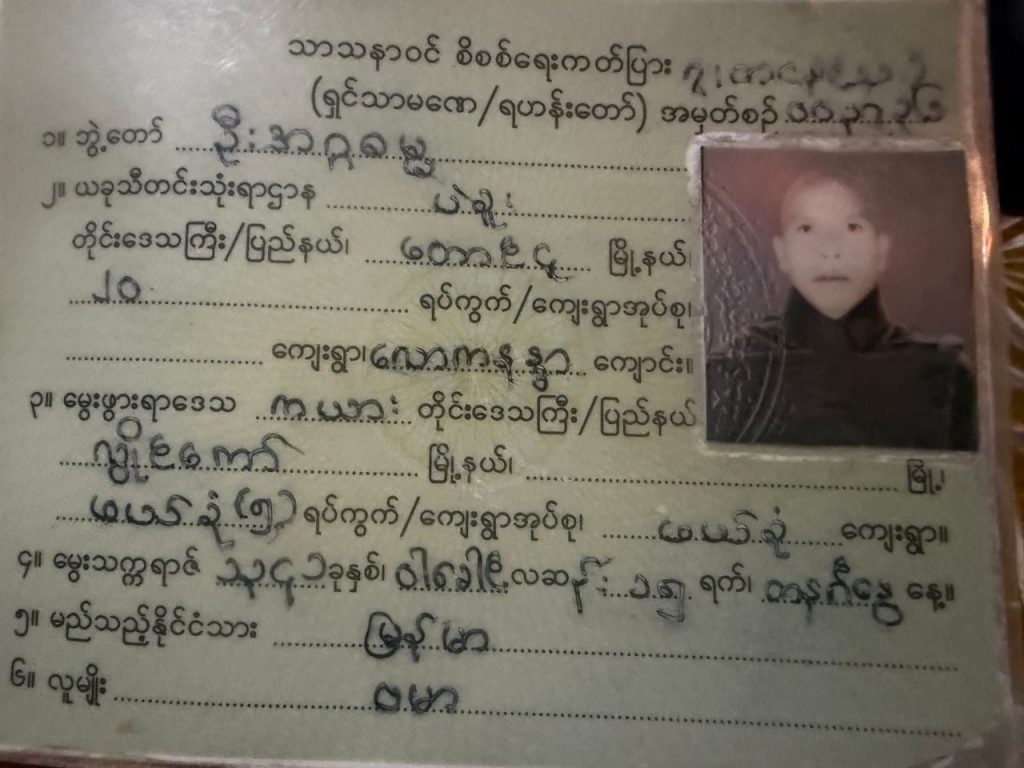 သာသနာဝင် စိစစ်ရေးကတ်ပြား
(ရှင်သာမဏေ/ရဟန်းတော်) အမှတ်စဉ်
၁။ ဘွဲ့တော် ဦးအဂ္ဂဓမ္မ
၂။ ယခုသီတင်းသုံးရာဌာန ပဲခူး
တိုင်းဒေသကြီး/ပြည်နယ်၊ တောင်ငူ မြို့နယ်၊
၂၀ ရပ်ကွက်/ကျေးရွာအုပ်စု၊
ကျေးရွာ၊ လောကနန္ဒာ ကျောင်း။
၃။ မွေးဖွားရာဒေသ ကယား တိုင်းဒေသကြီး/ပြည်နယ်
လွိုင်ကော် မြို့နယ်၊ မြို့၊
(၅) ရပ်ကွက်/ကျေးရွာအုပ်စု၊ ကျေးရွာ။
၄။ မွေးသက္ကရာဇ် ခုနှစ်၊ ဝါခေါင် လဆန်း ၁၅ ရက်၊ တနင်္ဂနွေ နေ့။
၅။ မည်သည့်နိုင်ငံသား မြန်မာ
၆။ လူမျိုး ဗမာ